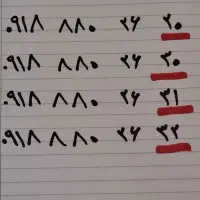 ۰۹۱۸ ۸۸۰ ۲۶ ۲۰
۰۹۱۸ ۸۸۰ ۲۶ ۳۰
۰۹۱۸ ۸۸۰ ۲۶ ۳۱
۰۹۱۸ ۸۸۰ ۲۶ ۳۲